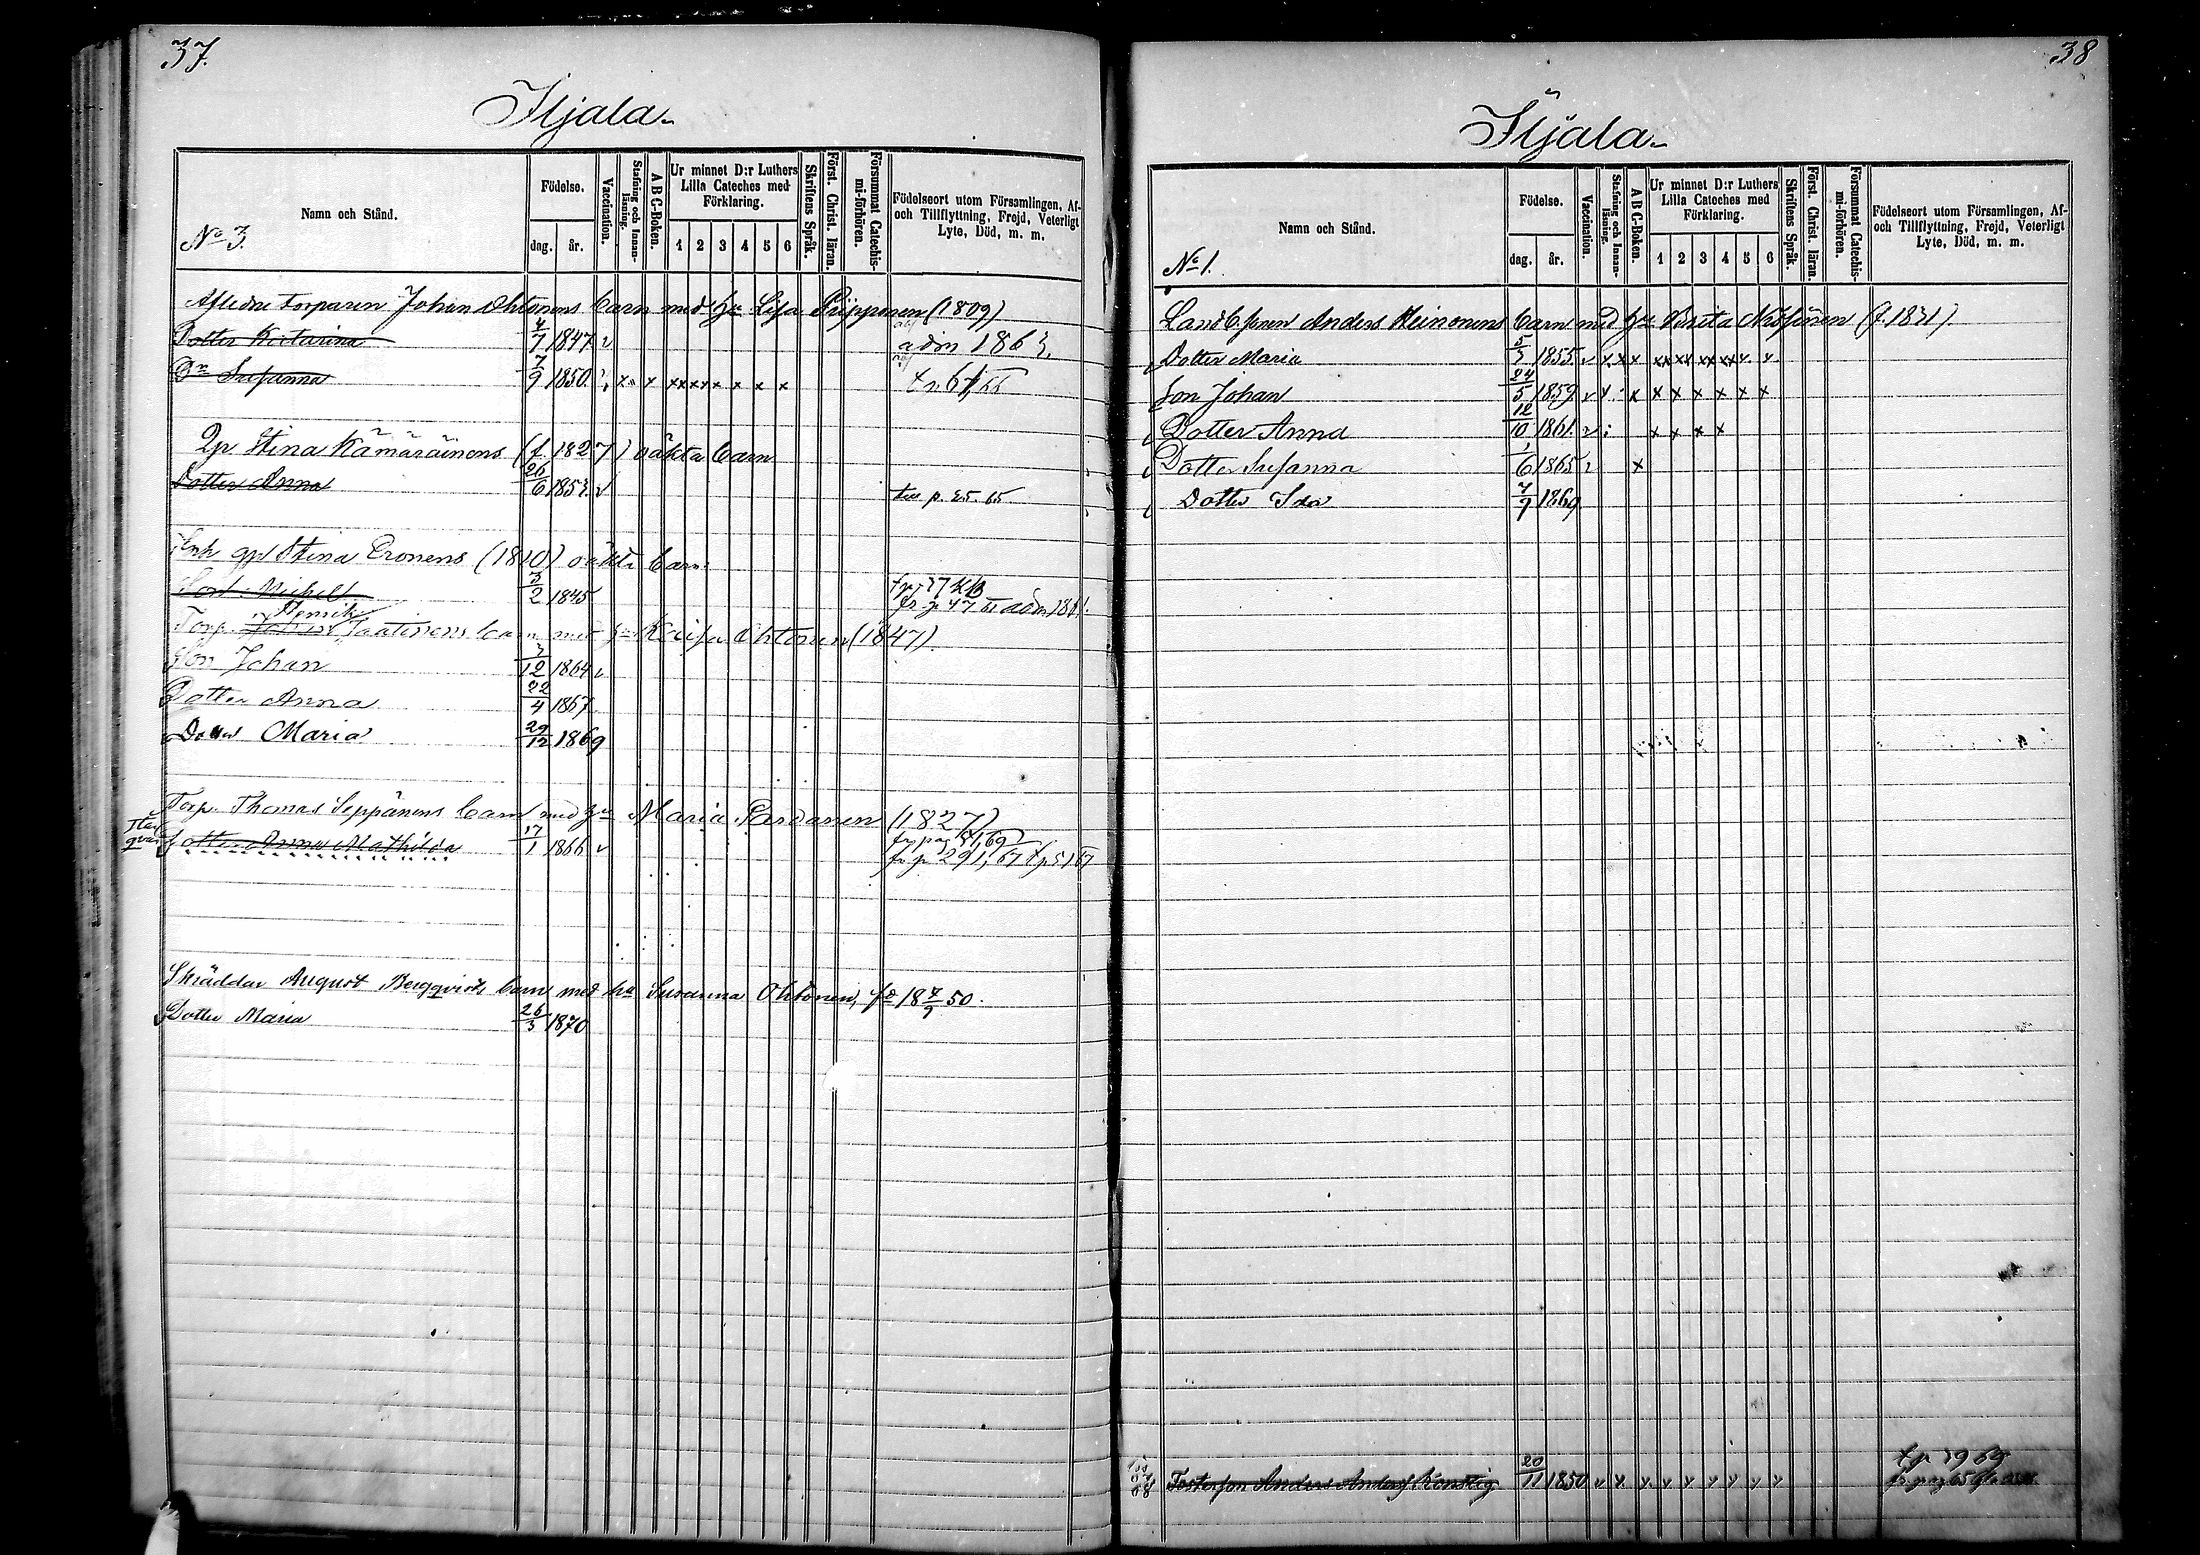 37.
Iljala.
Namn och Stånd.
No 3.
Födelse.
dag.
år.
Vaccination.
Stafning och Innan-läsning.
A B C-Boken.
Ur minnet D:r Luthers Lilla Cateches med Förklaring.
1 2 3 4 5 6
Skriftens Språk.
Först. Christ. läran.
Försummat Catechis-mi-förhören.
Födelseort utom Församlingen, Af-
och Tillflyttning, Frejd, Veterligt
Lyte, Död, m. m.
Afledne torparen Johan Ohtonens barn med hu Lisa Piipponen (1809)
Dotter Katarina 4/7 1847 v adm 1863.
Dr Susanna 7/9 1850 x x x x x x x x x
Qp. Stina Kämäräinens (f. 1827) oäkta barn
Dotter Anna 26/6 1853 v till p. 25. 65
Enk. qp Stina Eronens (1810) oäkta barn.
Son Michell 3/2 1845
Henrik
Torp. Jaatinens barn med hu Kaisa Ohtonen (1847)
Son Johan 3/12 1864 v
Dotter Anna 22/4 1867
Dotter Maria 29/12 1869
Torp. Thomas Seppänens barn med hu Maria Pardanen (1827)
Dotter Anna Mathilda 17/1 1866 v fr p 291, 67
Skräddar August Bergqvists barn med hu Susanna Ohtonen, fd 18 7/9 50.
Dotter Maria 26/3 1870
38
Iljala.
Namn och Stånd.
No 1.
Födelse.
dag.
år.
Vaccination.
Stafning och Innan-läsning.
A B C-Boken.
Ur minnet D:r Luthers Lilla Cateches med Förklaring.
1 2 3 4 5 6
Skriftens Språk.
Först. Christ. läran.
Försummat Catechis-mi-förhören.
Födelseort utom Församlingen, Af-
och Tillflyttning, Frejd, Veterligt
Lyte, Död, m. m.
Anders Heinonens barn med hu (f. 1831).
Dotter Maria 5/3 1855 v x x x x x x x x x x x x
Son Johan 24/5 1859 v x x x x x x x x
Dotter Anna 12/10 1861 v x x x x
Dotter Susanna 1/6 1865 v x
Dotter Ida 7/9 1869
Fosterson Anders 20/11 1850 v x v v v v v v